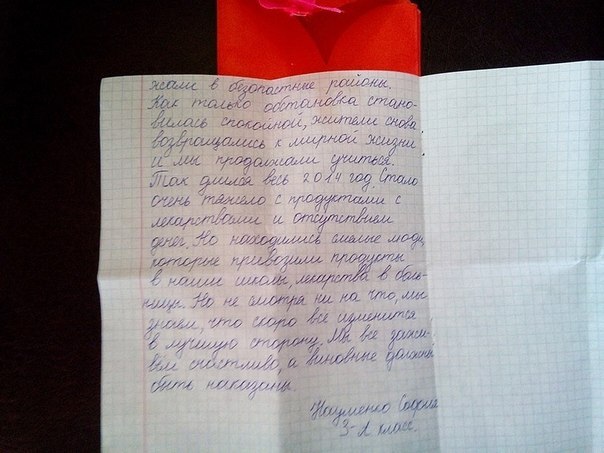 жали в безопастные районы.
Как только обстановка стано-
вилась спокойной, жители снова
возвращались к мирной жизни
и мы продолжали учиться.
Так длился весь 2014 год. Стало
очень тяжело с продуктами с
лекарствами и отсутствием
денег. Но находились смелые люди,
которые привозили продукты
в наши школы, лекарства в боль-
ницы. Но не смотря ни на что, мы
знаем, что скоро все изменится
в лучшую сторону. Мы все зажи-
вём счастливо, а виновные должны
быть наказаны.
Науменко София
3-А класс.